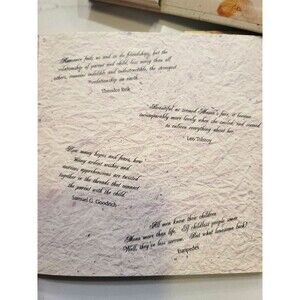 Romance fails us and so do friendships, but the
relationship of parent and child, less noisy than all
others, remains indelible and indestructible, the strongest
relationship on earth.
Theodor Reik
Beautiful as seemed Mama's face, it became
incomparably more lovely when she smiled, and seemed
to enliven everything about her.
Leo Tolstoy
How many hopes and fears, how
many ardent wishes and
anxious apprehensions are twisted
together in the threads that connect
the parent with the child.
Samuel G. Goodrich
All men know their children
Mean more than life. If childless people sneer,
Well, they've less sorrow. But what lonesome luck!
Euripides